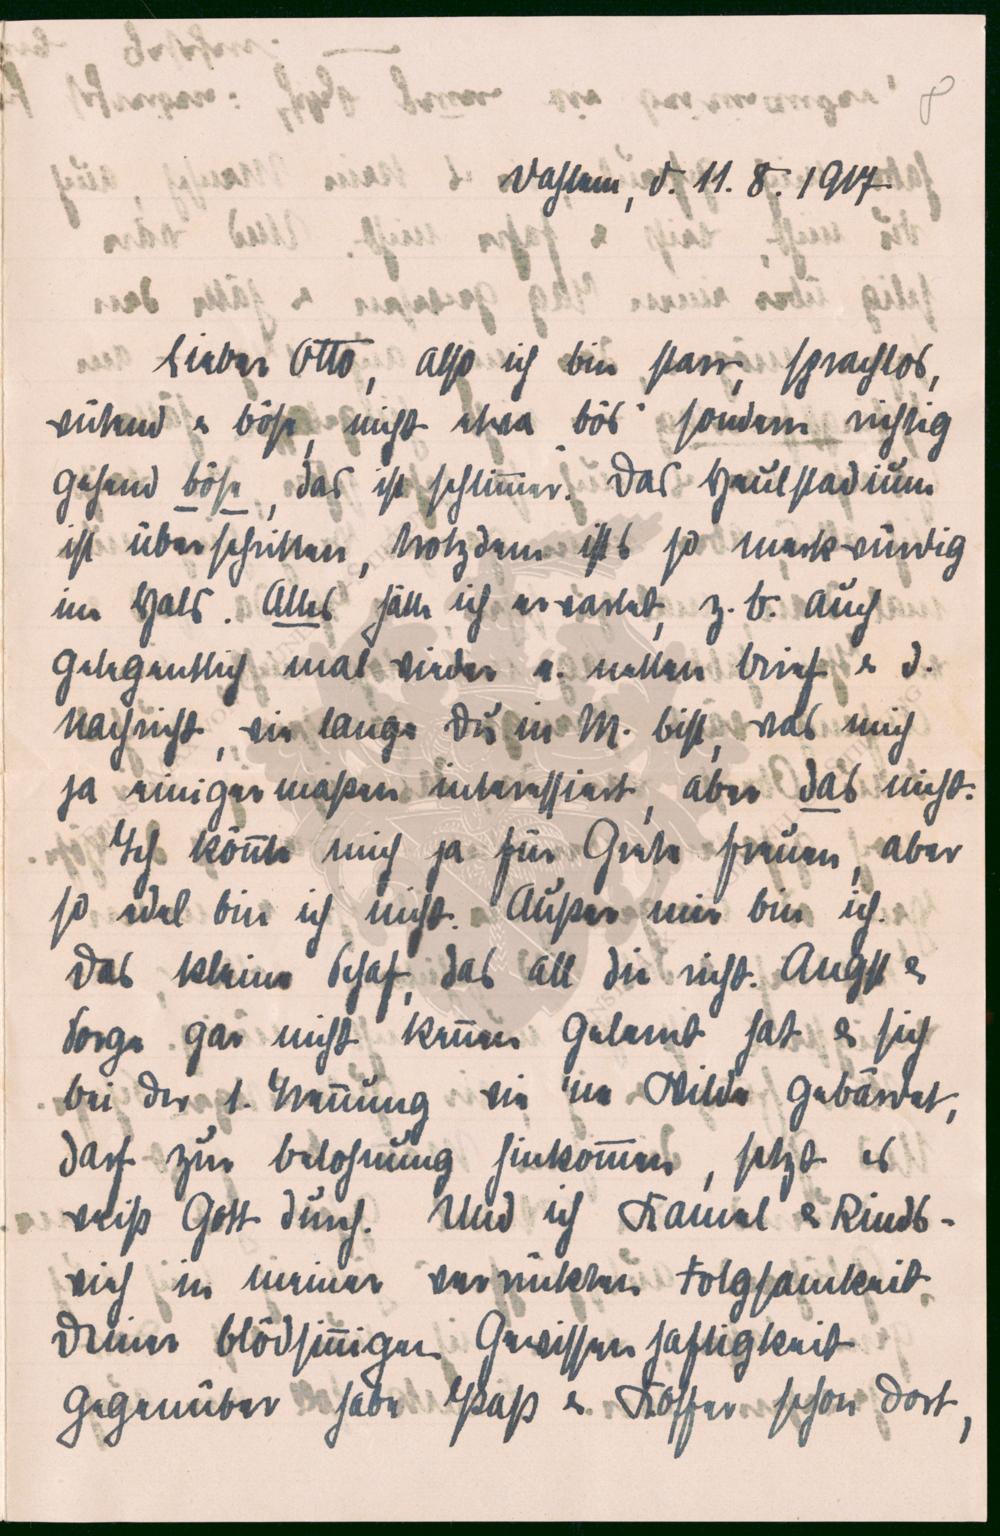 8
Dahlem, d. 11. 8. 1917.
Lieber Otto, also ich bin starr, sprachlos,
wütend & böse, nicht etwa „bös“ sondern richtig
gehend böse, das ist schlim̅er. Das Heulstadium
ist überschritten, trotzdem ists so merkwürdig
im Hals. Alles hätte ich erwartet, z. b. auch
gelegentlich mal wieder e. netten brief & d.
Nachricht, wie lange Du in M. bist, was mich
ja einigermaßen interessiert, aber das nicht.
Ich kön̅te mich ja für Grete freuen, aber
so edel bin ich nicht. Außer mir bin ich.
Das kleine Schaf, das all die richt. Angst &
Sorge gar nicht ken̅en gelernt hat & sich
bei der 1. Tren̅ung wie 'ne Wilde gebärdet,
darf zur belohnung hinkom̅en, setzt es
weiß Gott durch. Und ich Kamel & Rinds-
vieh in meiner verrückten Folgsamkeit
Deiner blödsin̅igen Gewissenhaftigkeit
gegenüber habe Paß & Koffer schon dort,